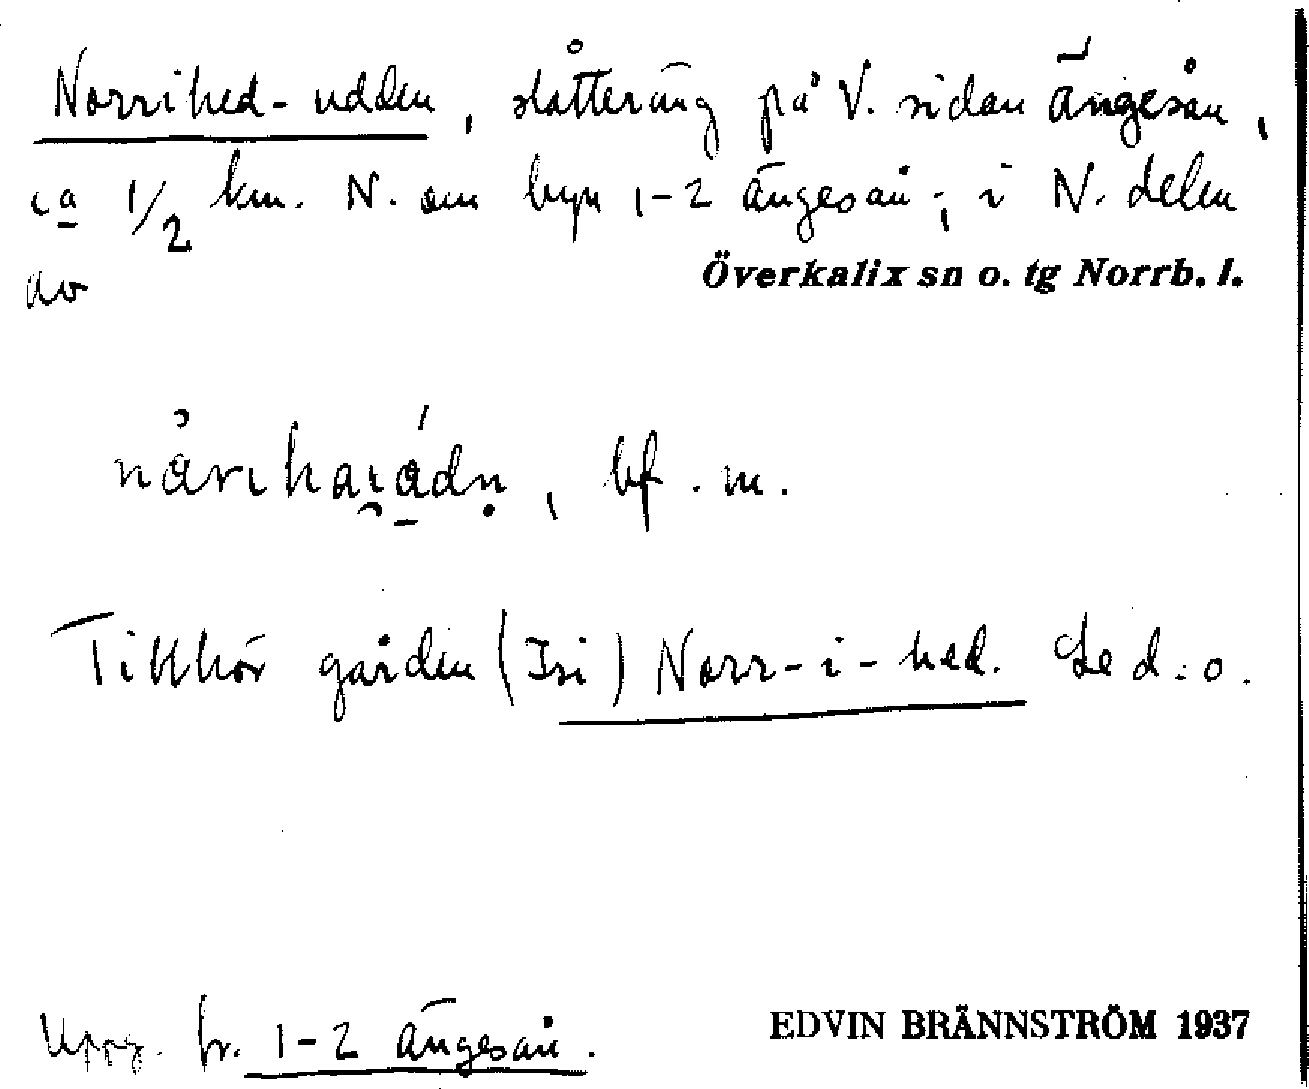 Norrihed-udden, slåtteräng på V. sidan Ängesån,
ca 1/2 km. N. om byn 1-2 Ängesån; i N. delen
av Överkalix sn o. tg Norrb. l.
bf. m.
Tillhör gården (Isi) Norr-i-hed. Se d:o.
Uppg. fr. 1-2 Ängesån.
EDVIN BRÄNNSTRÖM 1937